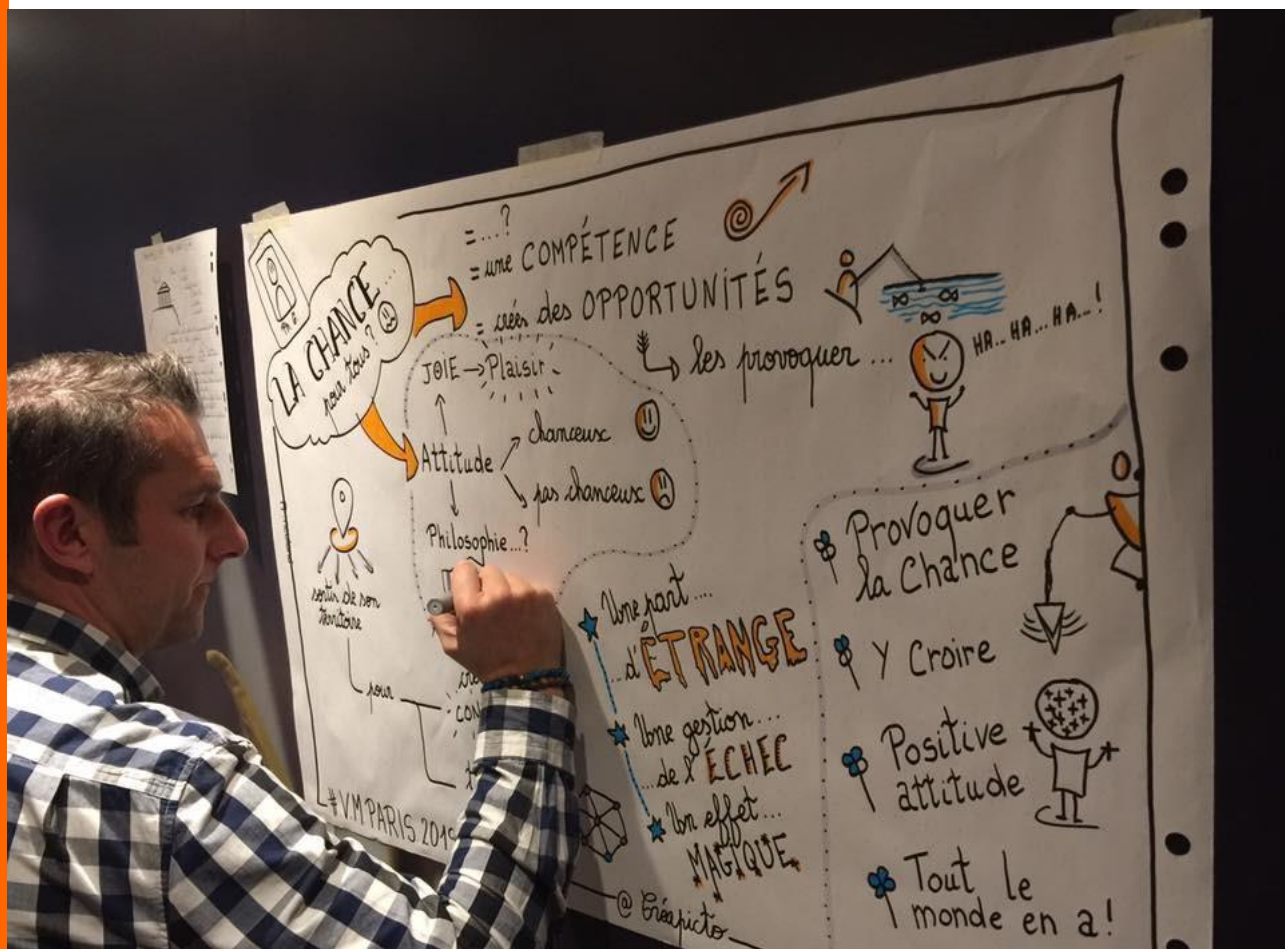 LA CHANCE...
pour tous ?
= ...?
= une COMPÉTENCE
= créés des OPPORTUNITÉS
les provoquer ...
HA... HA... HA... !
JOIE → Plaisir
Attitude
chanceux
pas chanceux
Philosophie...?
sortir de son
territoire
pour
CON
#VMPARIS 2019
Une part ...
...d'ÉTRANGE
Une gestion...
...de l'ÉCHEC
Un effet...
MAGIQUE
@ Créapicto
Provoquer
la Chance
Y Croire
Positive
attitude
Tout le
monde en a !